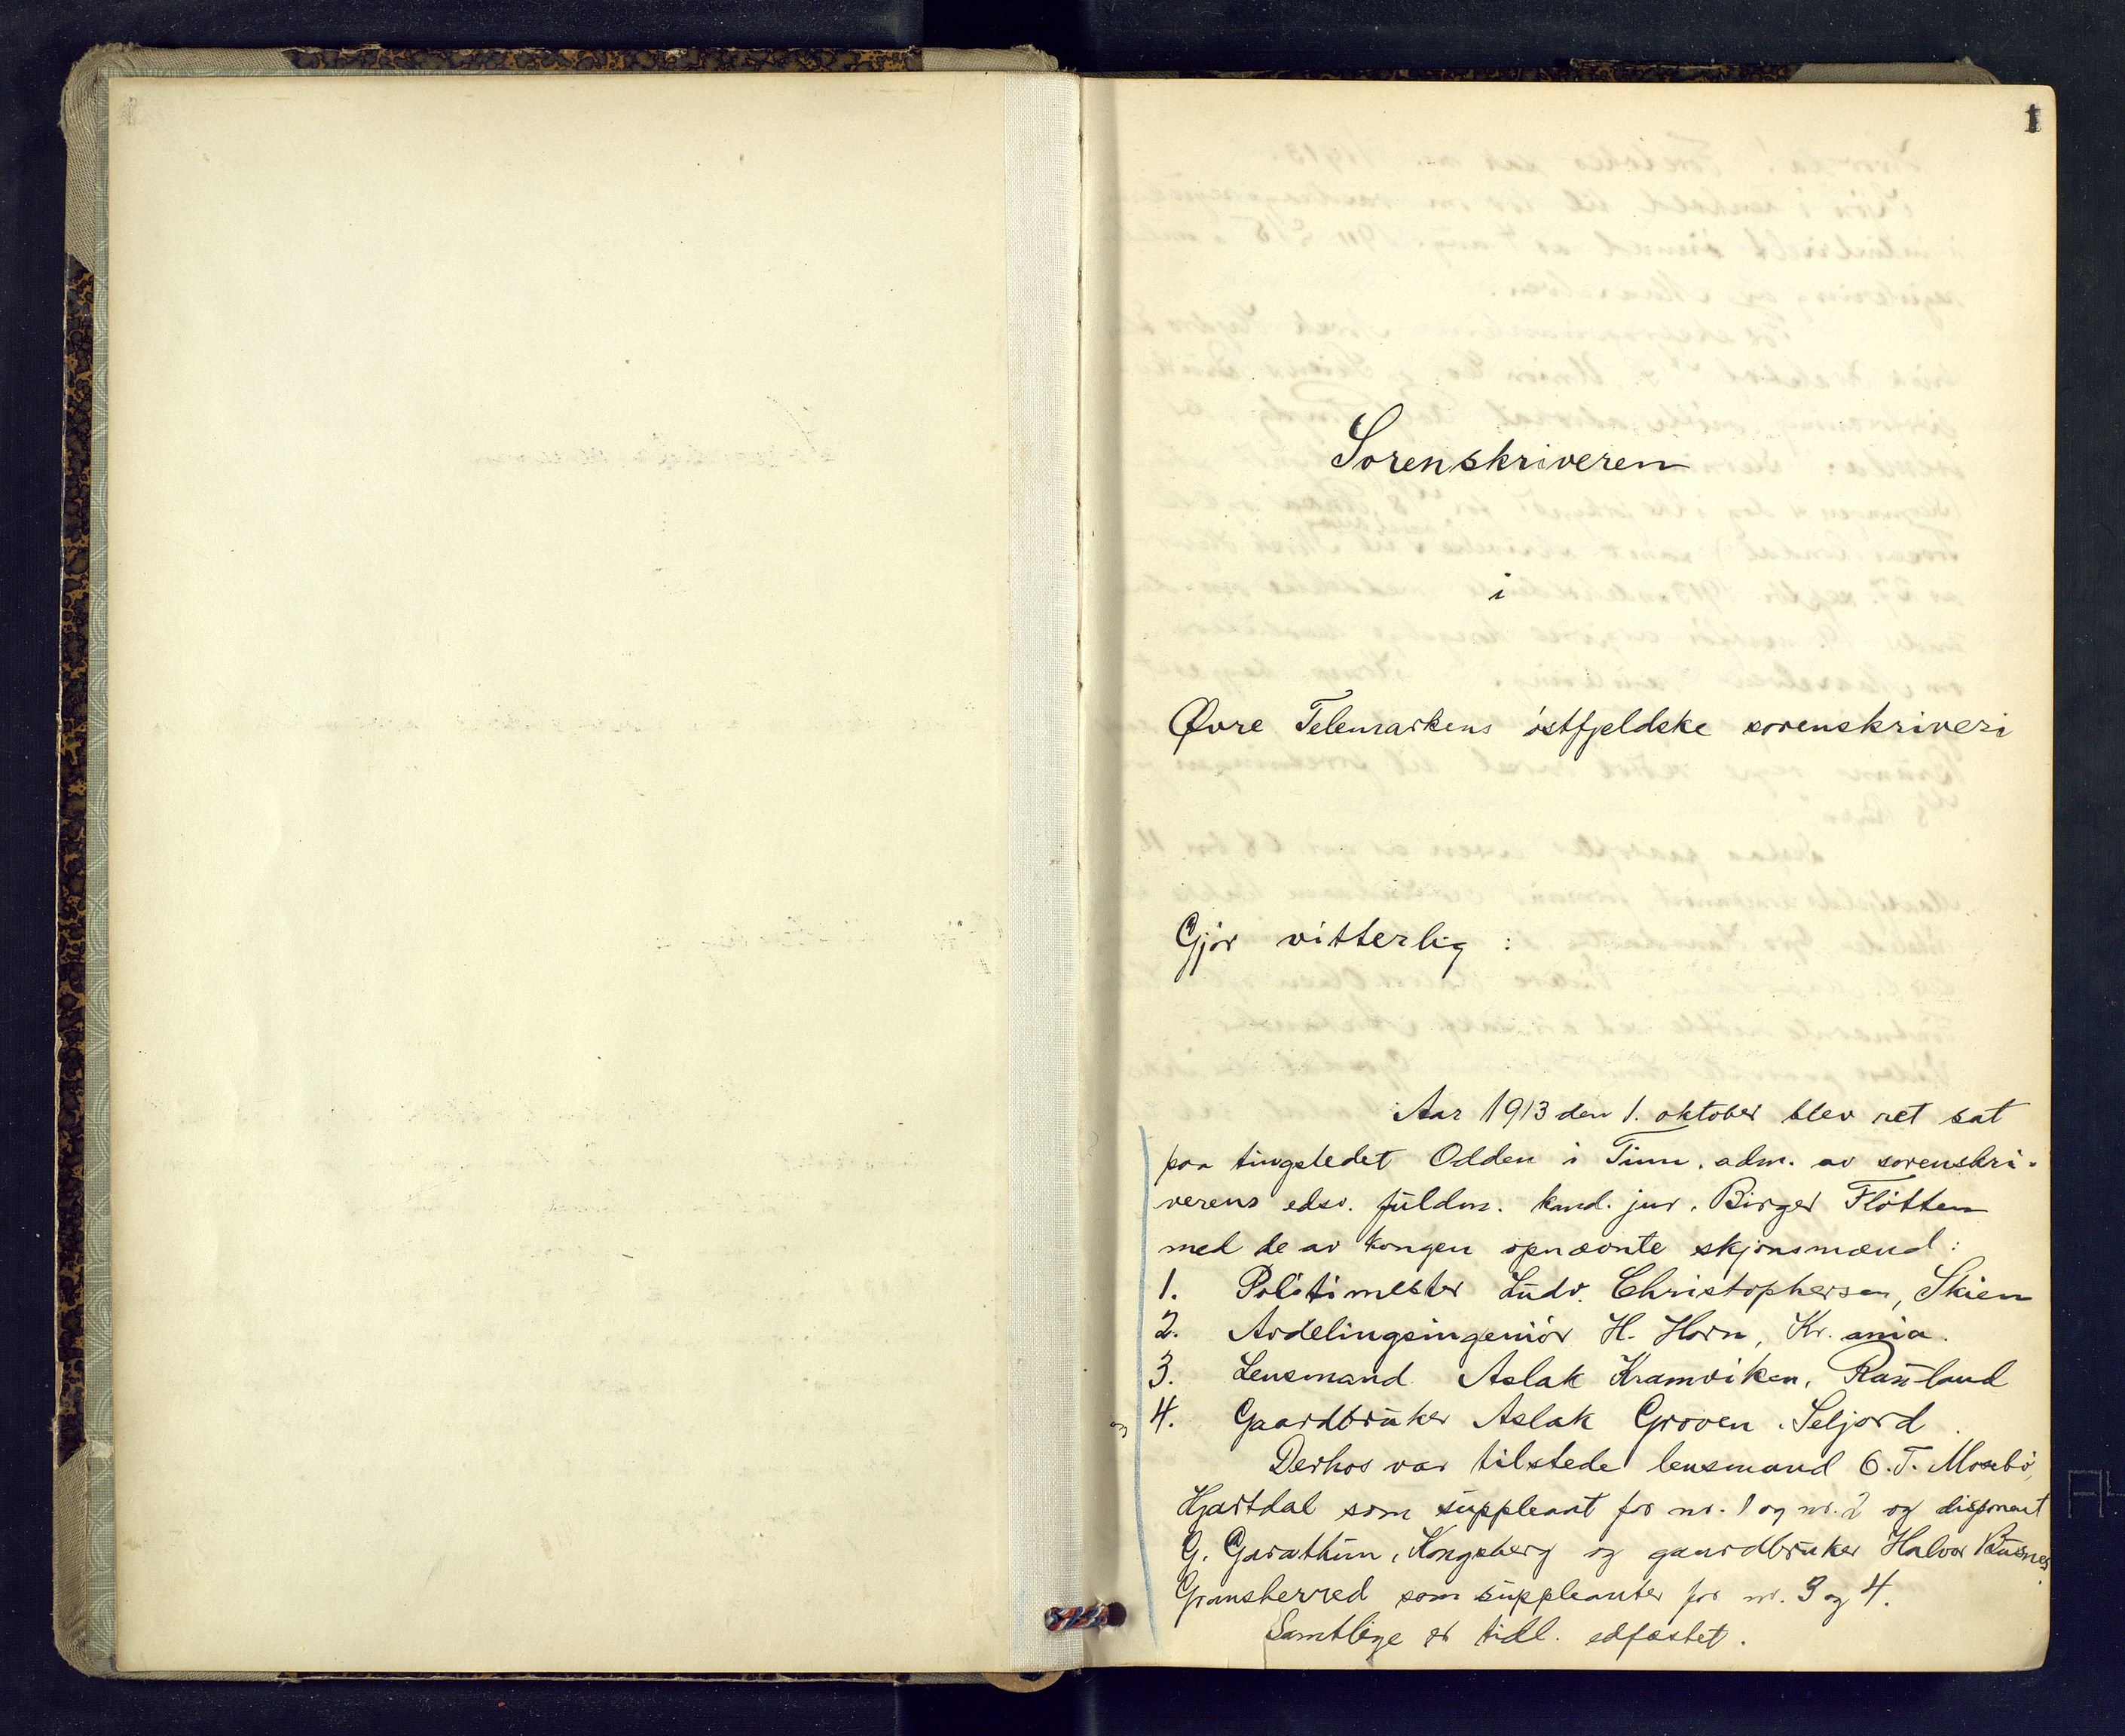 1
Sorenskriveren
i
Øvre Telemarkens østfjeldske sorenskriveri
Gjør vitterlig :
Aar 1913 den 1. oktober blev ret sat
paa tingstedet Odden i Tinn, adm. av sorenskri-
verens edsv. fuldm. kand. jur. Birger Fløtten
med de av kongen opnævnte skjønsmænd :
1. Politimester Ludv. Christophersen, Skien
2. Avdelingsingeniør H. Horn, Kr.ania.
3. Lensmand Aslak Kramviken, Rauland
og 4. Gaardbruker Aslak Groven, Seljord.
Derhos var tilstede lensmand O. T. Mosebø,
Hjartdal som suppleant for nr. 1 og nr. 2 og disponent
G. Garathun, Kongsberg og gaardbruker Halvor Busnes
Gransherred som suppleanter for nr. 3 og 4.
Samtlige er tidl. edfæstet.